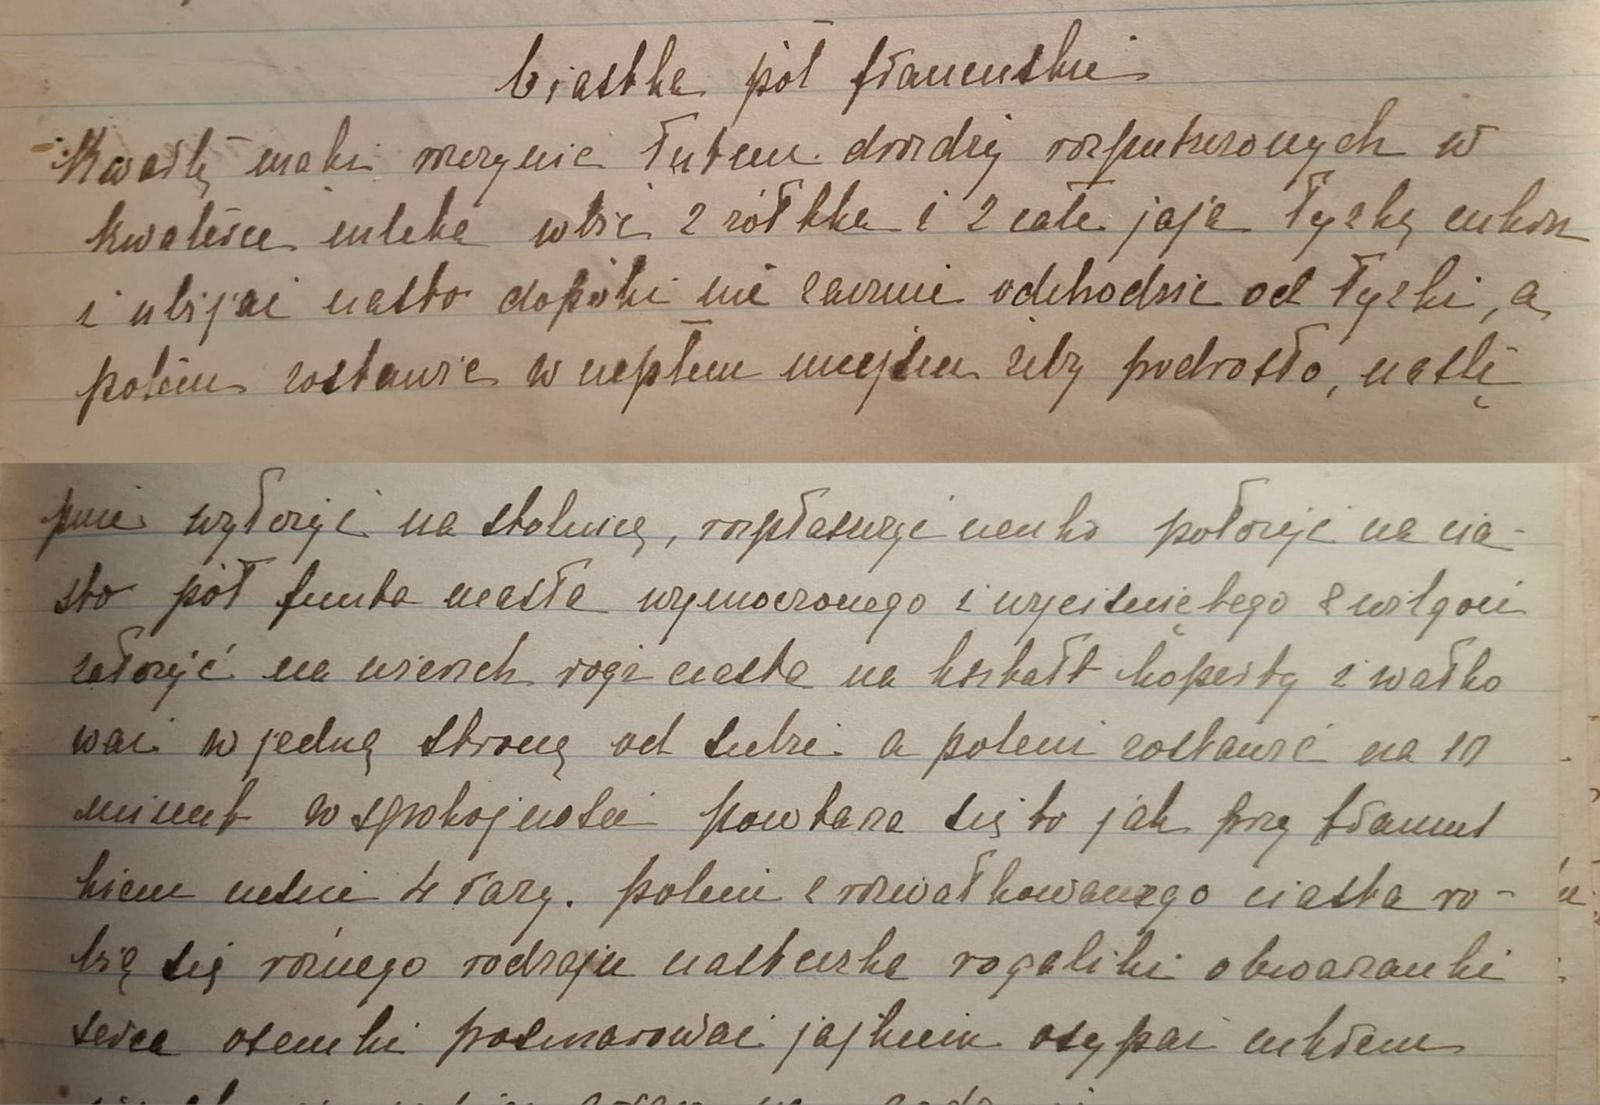 Ciastka pół francuskie
Kwartę mąki rozczynić łutem drożdży rozpuszczonych w
kwaterce mleka wbić 2 żółtka i 2 całe jaja łyżkę cukru
i ubijać ciasto dopóki nie zacznie odchodzić od łyżki, a
potem zostawić w ciepłem miejscu żeby podrosło, nastę
pnie wyłożyć na stolnicę, rozpłaszczyć cienko położyć na cia-
sto pół funta masła wymoczonego i wyciśniętego z wilgoci
założyć na wierzch rogi ciasta na kształt koperty i wałko
wać w jedną stronę od siebie a potem zostawić na 10
minut w spokojności powtarza się to jak przy francus
kiem cieście 4 razy. potem z rozwałkowanego ciasta ro-
bią się różnego rodzaju ciasteczka rogaliki obwarzanki
serca osemki posmarować jajkiem osypać cukrem